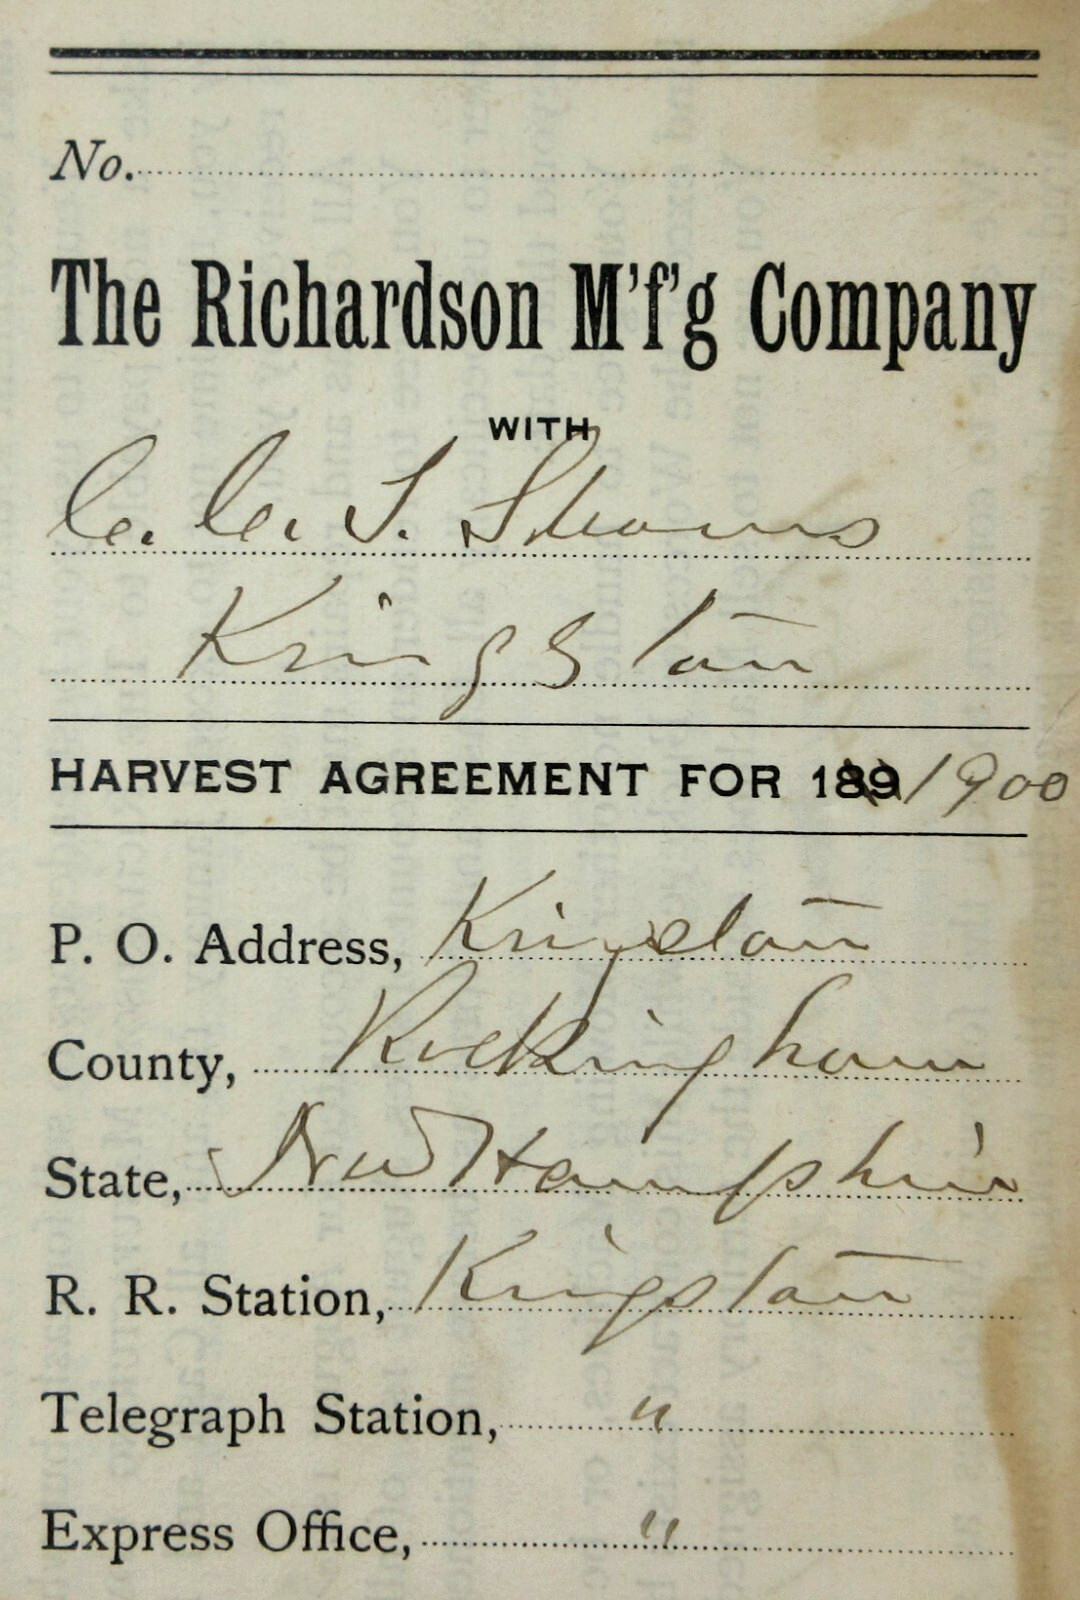 No.
The Richardson M'f'g Company
WITH
C. C. S.
Kingston
HARVEST AGREEMENT FOR 189 1900
P. O. Address, Kingston
County, Rockingham
State, New Hampshire
R. R. Station, Kingston
Telegraph Station, "
Express Office, "